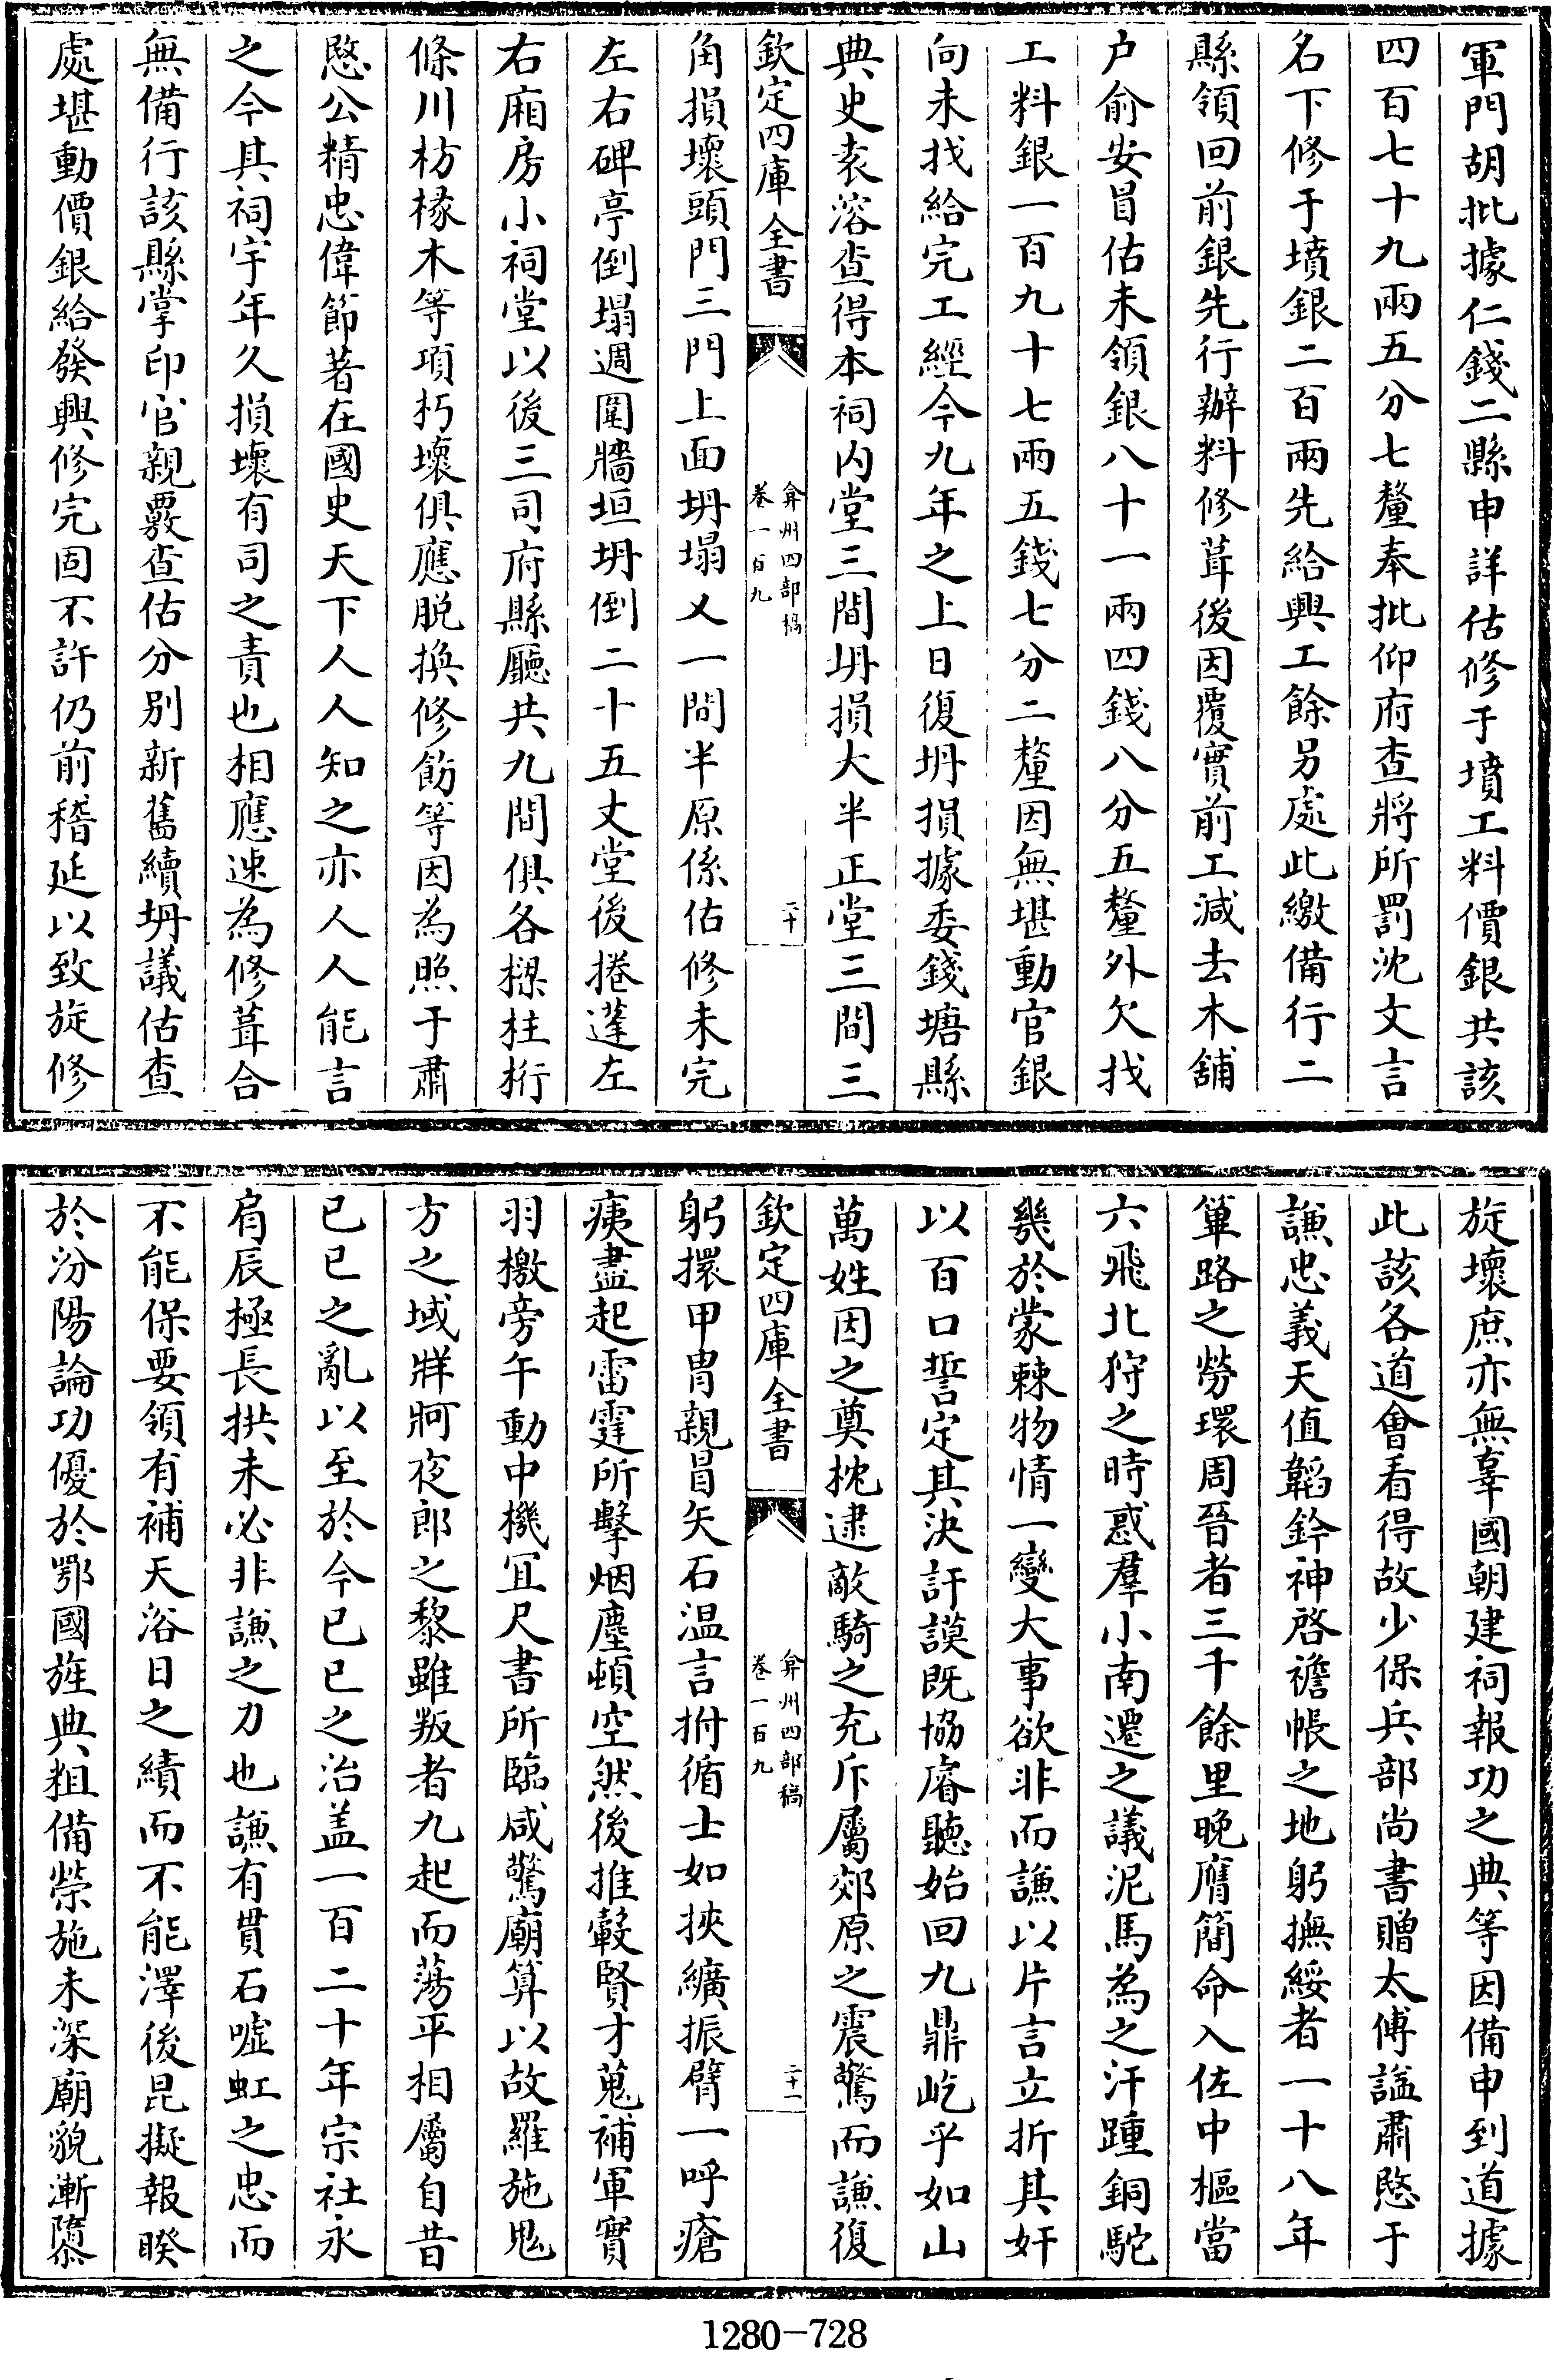 軍門胡批據仁錢二縣申詳估修于墳工料價銀共該
四百七十九兩五分七釐奉批仰府查將所罰沈文言
名下修于墳銀二百兩先給興工餘另處此繳備行二
縣領回前銀先行辦料修葺後因覆實前工減去木舖
户俞安冒估未領銀八十一兩四錢八分五釐外欠找
工料銀一百九十七兩五錢七分二釐因無堪動官銀
向未找給完工經今九年之上日復坍損據委錢塘縣
典史袁溶查得本祠内堂三間坍損大半正堂三間三
欽定四庫全書
弇州四部稿
卷一百九
二十
角損壞頭門三門上面坍塌乂一間半原係估修未完
左右碑亭倒塌週圍牆垣坍倒二十五丈堂後捲蓬左
右廂房小祠堂以後三司府縣廳共九間俱各樑柱桁
條川枋椽木等項朽壞俱應脱換修飭等因為照于肅
愍公精忠偉節著在國史天下人人知之亦人人能言
之今其祠宇年久損壞有司之責也相應速為修葺合
無備行該縣掌印官親覈查估分別新舊續坍議估查
處堪動價銀給發興修完固不許仍前稽延以致旋修
旋壞庶亦無辜國朝建祠報功之典等因備申到道據
此該各道會看得故少保兵部尚書贈太傅諡肅愍于
謙忠義天值韜鈐神啓襜帳之地躬撫綏者一十八年
篳路之勞環周晉者三千餘里晚膺簡命入佐中樞當
六飛北狩之時惑羣小南遷之議泥馬為之汗踵銅駝
幾於蒙棘物情一變大事欲非而謙以片言立折其奸
以百口誓定其決訏謨既協睿聽始回九鼎屹乎如山
萬姓因之奠枕逮敵騎之充斥屬郊原之震驚而謙復
欽定四庫全書
弇州四部稿
卷一百九
二十一
躬擐甲胄親冒矢石温言拊循士如挾纊振臂一呼瘡
痍盡起雷霆所擊烟塵頓空然後推轂賢才蒐補軍實
羽檄旁午動中機宜尺書所臨咸驚廟算以故羅施鬼
方之域牂牁夜郎之黎雖叛者九起而蕩平相屬自昔
已巳之亂以至於今已巳之治盖一百二十年宗社永
肩辰極長拱未必非謙之力也謙有貫石噓虹之忠而
不能保要領有補天浴日之績而不能澤後昆擬報暌
於汾陽論功優於鄂國旌典粗備榮施未深廟貌漸隳
1280-728